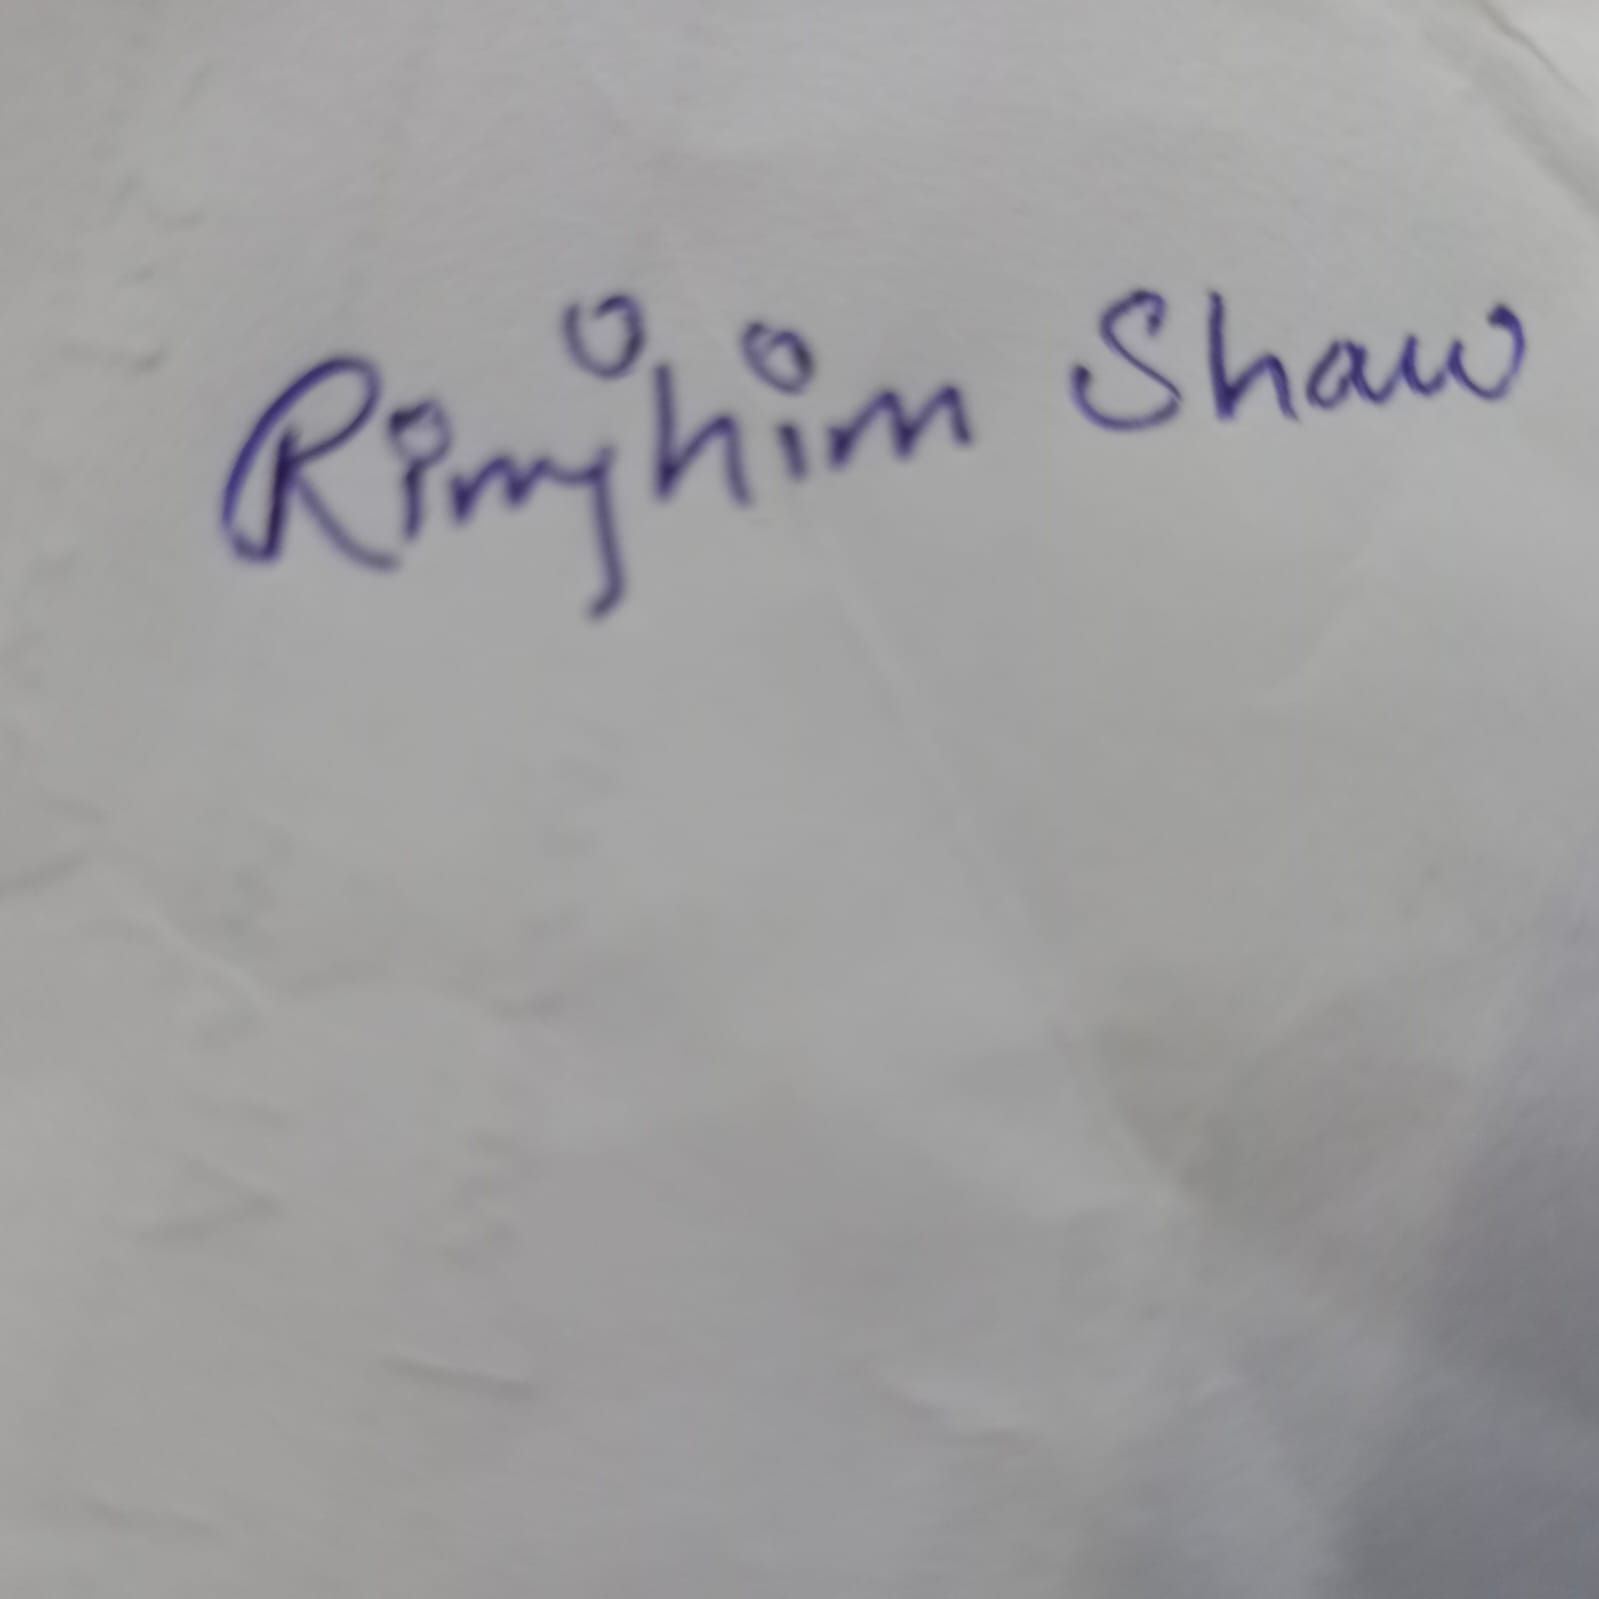 Rimjhim Shaw